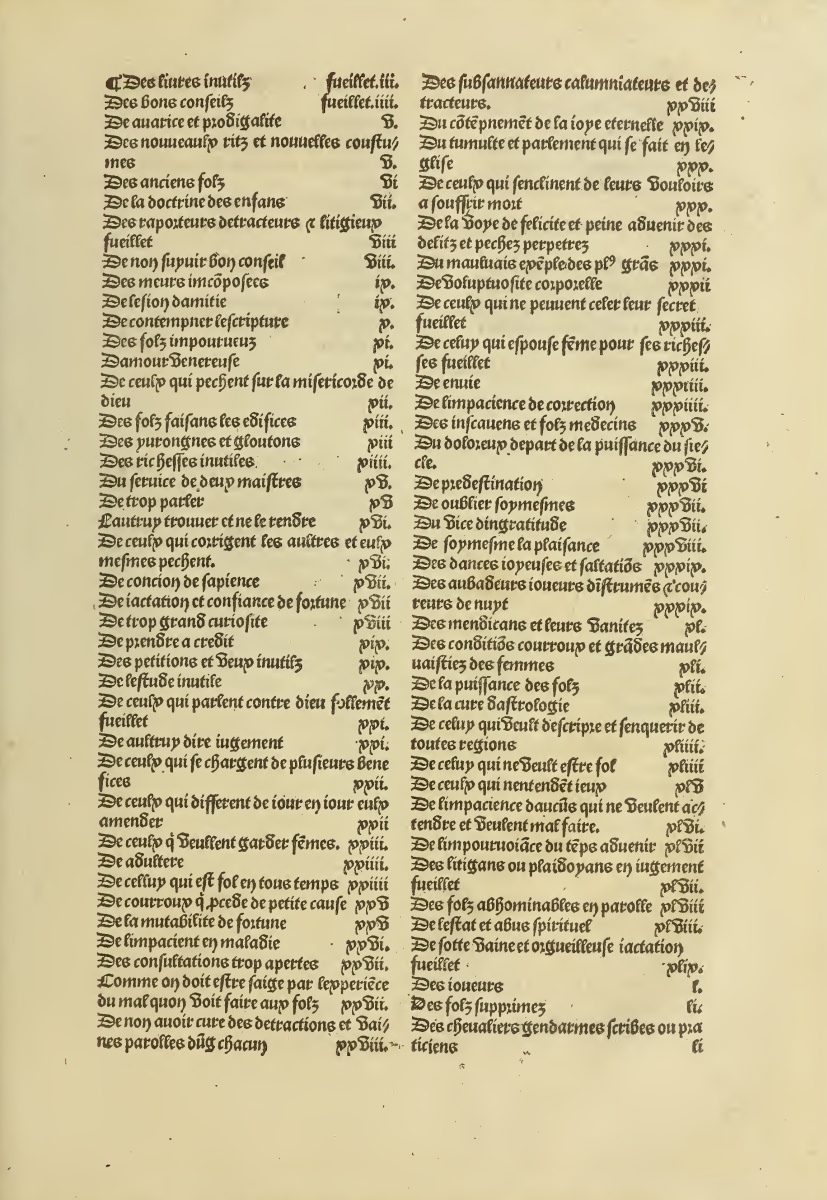 ¶Des liures inutilz fueillet.iii.
Des bons conseilz fueillet.iiii.
De auarice et prodigalite v.
Des nouueaulx ritz et nouuelles coustu/
mes v.
Des anciens folz vi
De la doctrine des enfans vii.
Des raporteurs detracteurs & litigieux
fueillet viii
De non suyuir bon conseil viii.
Des meurs incōposees ix.
De lesion damitie ix.
De contempner lescripture x.
Des folz impourueuz xi.
Damour venereuse xi.
De ceulx qui pechent sur la misericorde de
dieu xii.
Des folz faisans les edifices xiii.
Des yurongnes et gloutons xiii
Des richesses inutiles. xiiii.
Du seruice de deux maistres xv.
De trop parler xv
Lautruy trouuer et ne le rendre xvi.
De ceulx qui corrigent les aultres et eulx
mesmes pechent. xvi.
De concion de sapience xvii.
De iactation et confiance de fortune xvii
De trop grand curiosite xviii
De prendre a credit xix.
Des petitions et veux inutilz xix.
De lestude inutile xx.
De ceulx qui parlent contre dieu follemēt
fueillet xxi.
De aultruy dire iugement xxi.
De ceulx qui se chargent de plusieurs bene
fices xxii.
De ceulx qui different de iour en iour eulx
amender xxii
De ceulx q̇ veullent garder fēmes. xxiii.
De adultere xxiiii.
De celluy qui est fol en tous temps xxiiii
De courroux q̇ ꝓcede de petite cause xxv
De la mutabilite de fortune xxv
De limpacient en maladie xxvi.
Des consultations trop apertes xxvii.
Comme on doit estre saige par lexperiēce
du mal quon voit faire aux folz xxvii.
De non auoir cure des detractions et vai/
nes parolles dūg chacun xxviii.
Des subsannateurs calumniateurs et de/
tracteurs. xxviii
Du cōtēpnemēt de la ioye eternelle xxix.
Du tumulte et parlement qui se fait en le/
glise xxx.
De ceulx qui senclinent de leurs vouloirs
a souffrir mort xxx.
De la voye de felicite et peine aduenir des
delitz et pechez perpetrez xxxi.
Du mauluais exēple des plꝰ grās xxxi.
De voluptuosite corporelle xxxii
De ceulx qui ne peuuent celer leur secret
fueillet xxxiii.
De celuy qui espouse fēme pour ses riches/
ses fueillet xxxiii.
De enuie xxxiiii.
De limpacience de correction xxxiiii.
Des inscauens et folz medecins xxxv.
Du doloreux depart de la puissance du sie/
cle. xxxvi.
De predestination xxxvi
De oublier soymesmes xxxvii.
Du vice dingratitude xxxvii.
De soymesme la plaisance xxxviii.
Des dances ioyeuses et saltatiōs xxxix.
Des aubadeurs ioueurs dīstrumēs & cou/
reurs de nuyt xxxix.
Des mendicans et leurs vanitez xl.
Des conditiōs courroux et grādes maul/
uaistiez des femmes xli.
De la puissance des folz xlii.
De la cure dastrologie xliii.
De celuy qui veult descripre et senquerir de
toutes regions xliiii.
De celuy qui ne veult estre fol xliiii
De ceulx qui nentendēt ieux xlv
De limpacience daucūs qui ne veulent ac/
tendre et veulent mal faire. xlvi.
De limpouruoiāce du tēps aduenir xlvii
Des litigans ou plaidoyans en iugement
fueillet xlvii.
Des folz abhominables en parolle xlviii
De lestat et abus spirituel xlviii.
De sotte vaine et orgueilleuse iactation
fueillet xlix.
Des ioueurs l.
Des folz supprimez li.
Des cheualiers gendarmes scribes ou pra
ticiens li